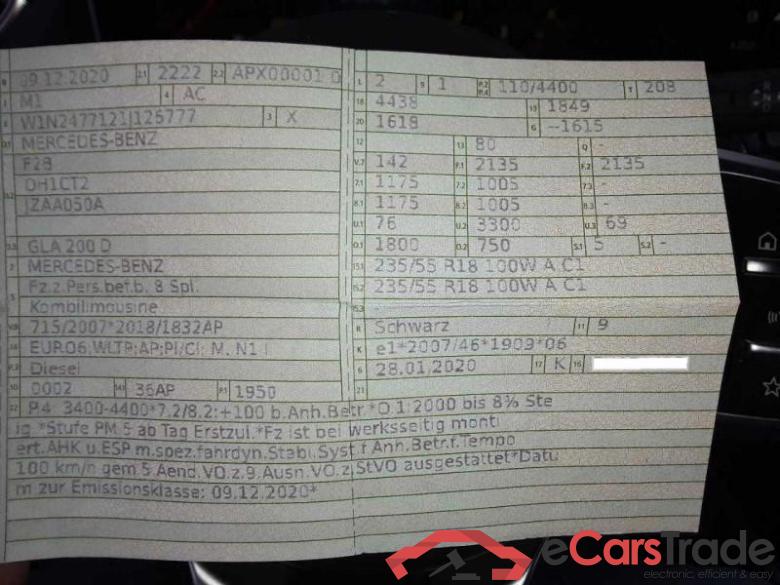 B 09.12.2020 2.1 2222 2.2 APX00001 0
J M1 4 AC
E W1N2477121J125777 3 X
D.1 MERCEDES-BENZ
F2B
D.2 OH1CT2
JZAA050A
D.3 GLA 200 D
2 MERCEDES-BENZ
5 Fz.z.Pers.bef.b. 8 Spl.
Kombilimousine
V.9 715/2007*2018/1832AP
14 EURO6;WLTP;AP;PI/CI; M, N1 I
P.3 Diesel
10 0002 14.1 36AP P.1 1950
L 2 9 1 P.2 P.4 110/4400 T 208
18 4438 19 1849
20 1618 G --1615
12 13 80 Q -
V.7 142 F.1 2135 F.2 2135
7.1 1175 7.2 1005 7.3 -
8.1 1175 8.2 1005 8.3 -
U.1 76 U.2 3300 U.3 69
O.1 1800 O.2 750 S.1 5 S.2 -
15.1 235/55 R18 100W A C1
15.2 235/55 R18 100W A C1
15.3 -
R Schwarz 11 9
K e1*2007/46*1909*06
6 28.01.2020 17 K 16
21
22 P.4: 3400-4400*7.2/8.2:+100 b.Anh.Betr.*O.1:2000 bis 8% Ste
ig.*Stufe PM 5 ab Tag Erstzul.*Fz ist bei werksseitig monti
ert.AHK u.ESP m.spez.fahrdyn.Stabi.Syst f Anh.Betr.f.Tempo
100 km/h gem 5.Aend.VO.z.9.Ausn.VO.z.StVO ausgestattet*Datu
m zur Emissionsklasse: 09.12.2020*
eCarsTrade
electronic, efficient & easy